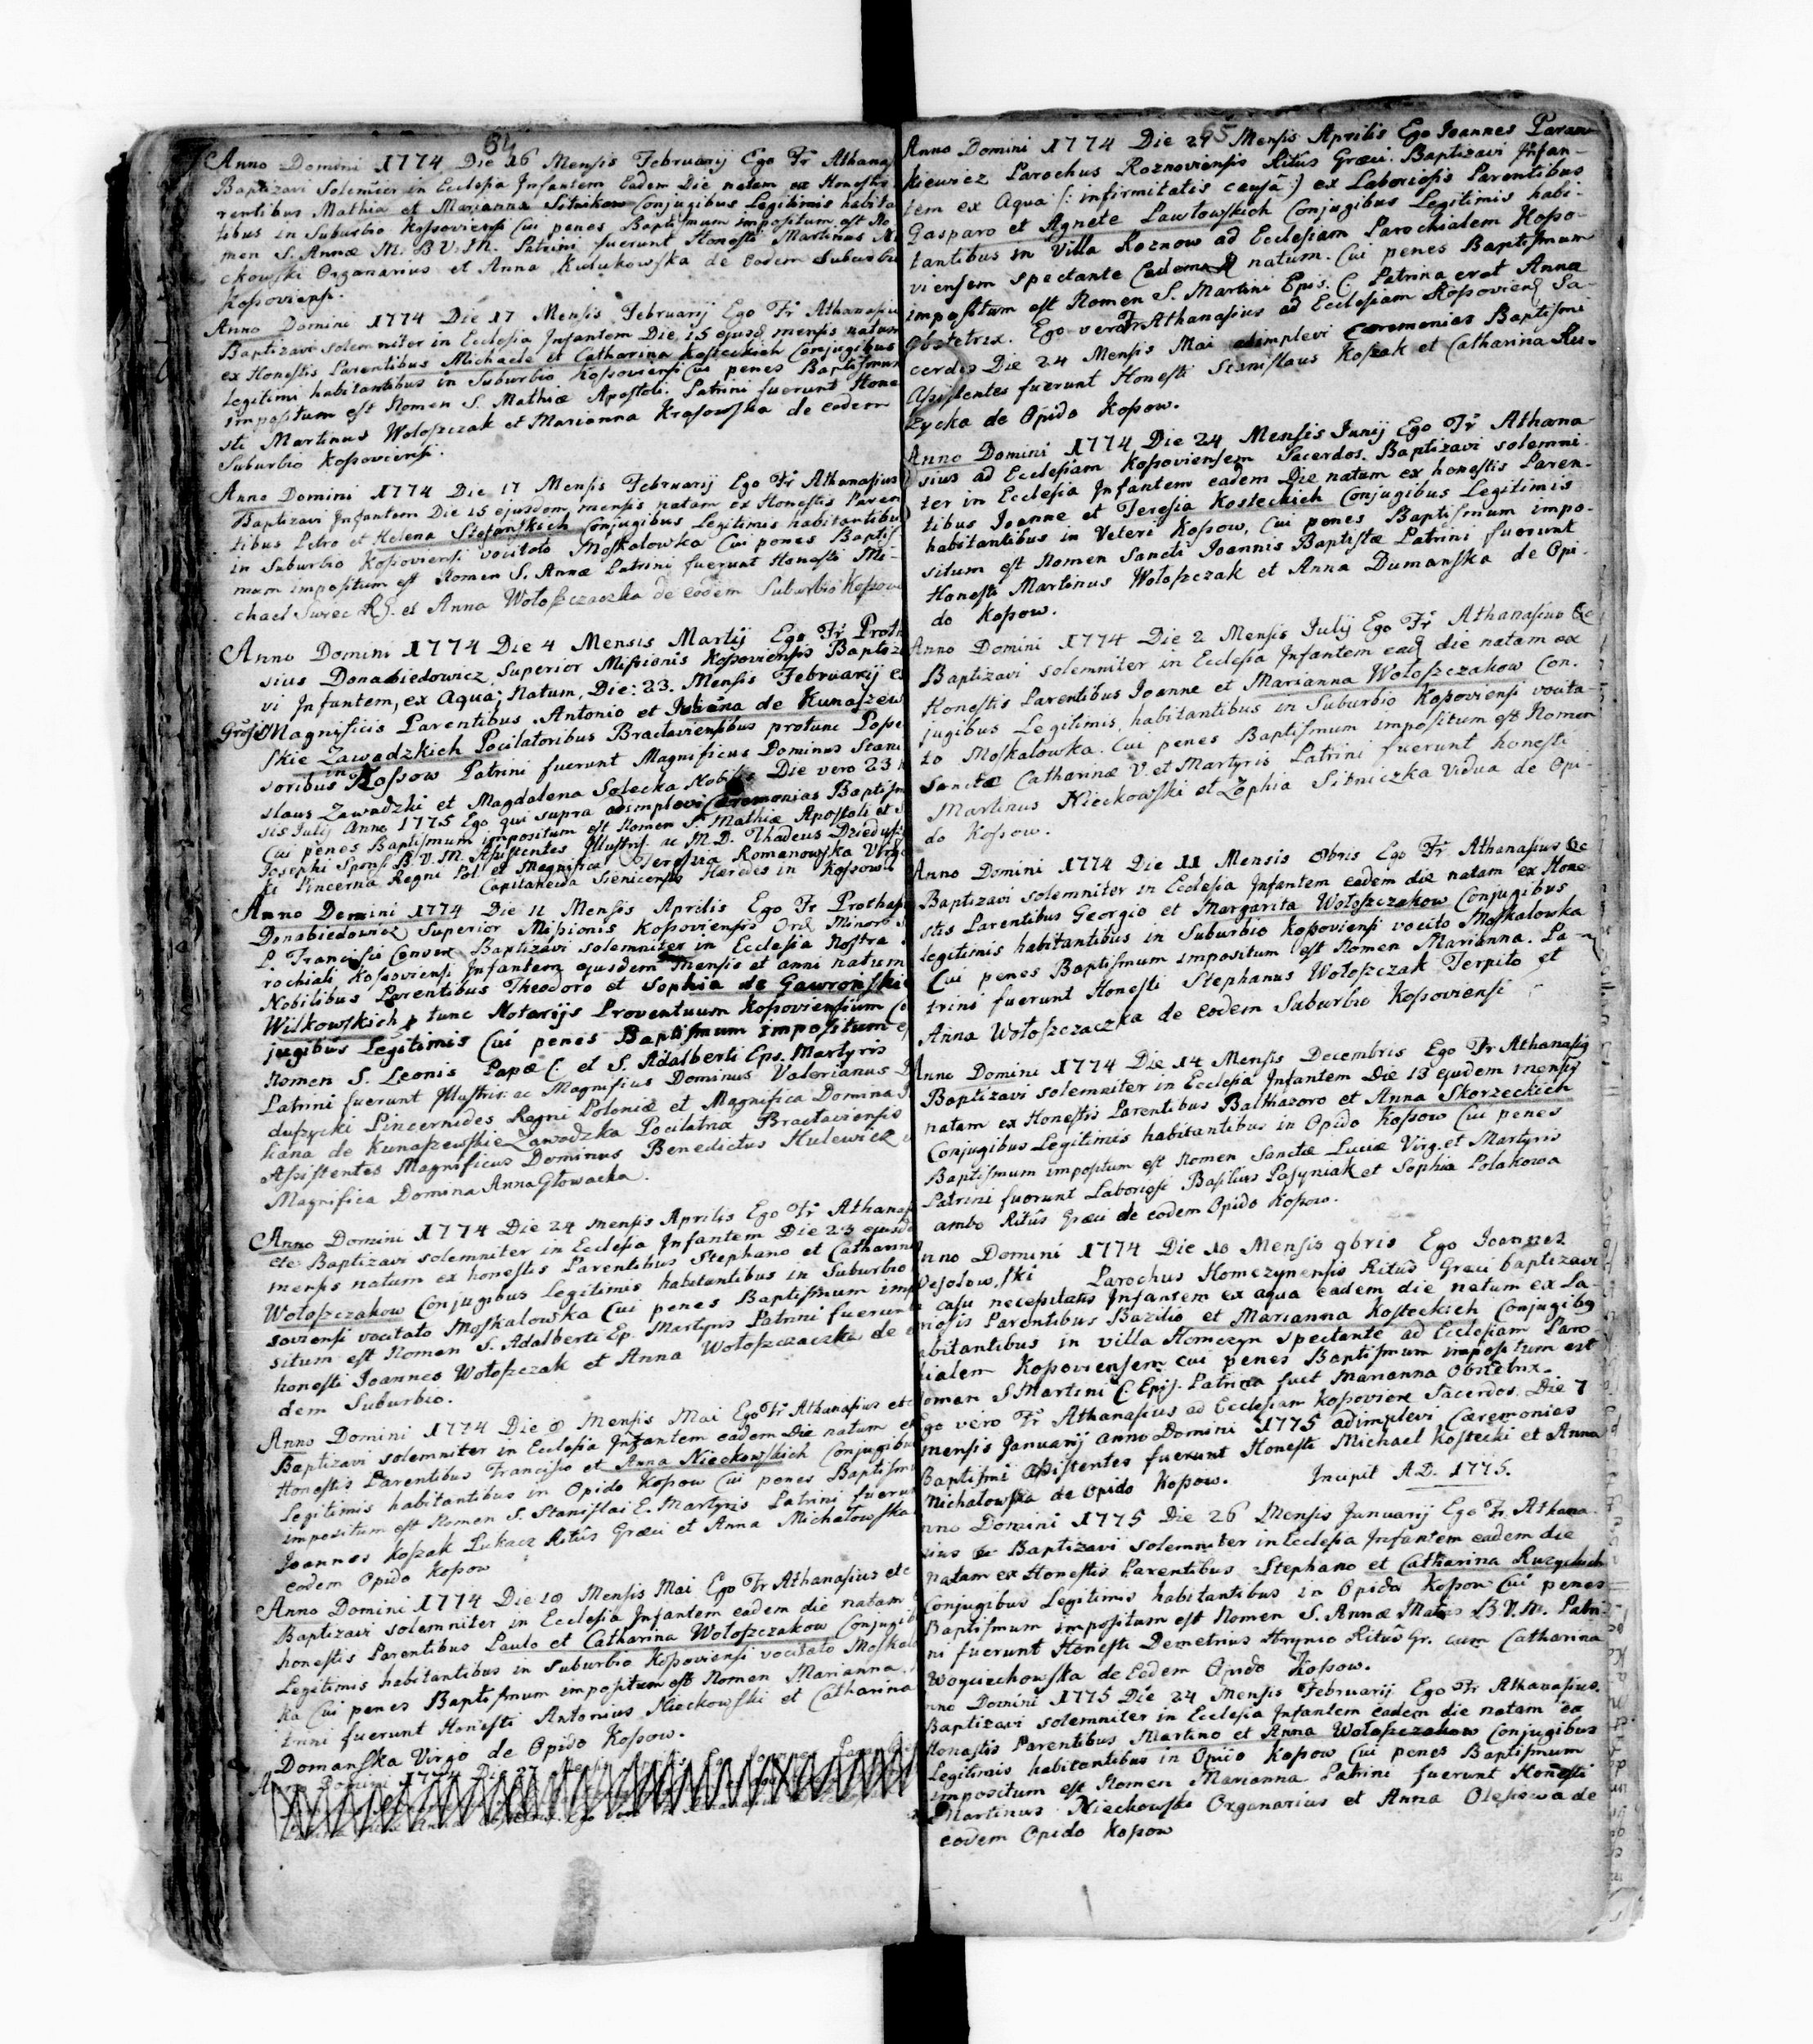 64
Anno Domini 1774 Die 16 Mensis Februarij Ego Fr Athana
Baptizavi Solemniter in Ecclesia Infantem Eadem Die natam ex Honestis
rentibus Mathia et Marianna Sitnikow Conjugibus Legitimis habita
tibus in Suburbio Kossoviensi Cui penes Baptismum impositum est No
men S. Annæ M. B V. M. Patrini fuerunt Honesti Martinus Ni
ckowski Organarius et Anna Kulukowska de eodem Suburbio
Kossoviensi.
Anno Domini 1774 Die 17 Mensis Februarij Ego Fr Athanasiu
Baptizavi solemniter in Ecclesia Infantem Die 15 ejusd mensis natum
ex Honestis Parentibus Michaele et Catharina Kosteckich Conjugibus
Legitimi habitantibus in Suburbio Kossoviensi Cui penes Baptismum
impositum est Nomen S. Mathiæ Apostoli. Patrini fuerunt Hone
sti Martinus Wołoszczak et Marianna Krasowska de eodem
Suburbio Kossoviensi.
Anno Domini 1774 Die 17 Mensis Februarij Ego Fr Athanasius
Baptizavi Infantem Die 15 ejusdem mensis natam ex Honestis Paren
tibus Petro et Helena Stefanskich Conjugibus Legitimis habitantibu
in Suburbio Kossoviensi vocitato Moskalowka Cui penes Baptis
mum impositum est Nomen S. Annæ Patrini fuerunt Honesti Mi-
chael Swiec RG. et Anna Wołoszczaczka de eodem Suburbio Kossov
Anno Domini 1774 Die 4 Mensis Martij Ego Fr Proth
sius Donabiedowicz Superior Missionis Kossoviensis Baptiza
vi Infantem, ex Aqua; Natum, Die: 23. Mensis Februarij e
Magnificis Parentibus, Antonio et Juliana de Kunaszew
skie Zawadzkich Pocilatoribus Braclaviensibus protunc Posse
soribus in Kossow Patrini fuerunt Magnificus Dominus Stani
slaus Zawadzki et Magdalena Solecka Nobiles Die vero 23
sis Julij Anno 1775 Ego qui supra adimplevi Cæremonias Baptism
Cui penes Baptismum impositum est Nomen S. Mathiæ Apostoli et S
Josephi Spons. B. V. M. Assistentes Illustris ac M. D. Thadeus Dziedusz
ki Pincerna Regni Pol et Magnifica Teressia Romanowska Virgo
Capitaneida Sienicensis Hæredes in Kossow
Anno Domini 1774 Die 11 Mensis Aprilis Ego Fr Prothas
Donabiedowicz Superior Missionis Kossoviensis Ord Minor S
P. Francisci Conven Baptizavi solemniter in Ecclesia Nostra
rochiali Kossoviensi Infantem ejusdem Mensis et anni natum
Nobilibus Parentibus Theodoro et Sophia de Gawronskie
Wilkowskich p tunc Notarijs Proventuum Kossoviensium Co
jugibus Legitimis Cui penes Baptismum impositum e
Nomen S. Leonis Papæ C. et S. Adalberti Eps. Martyris
Patrini fuerunt Illustris: ac Magnifius Dominus Valerianus D
duszycki Pincernides Regni Poloniæ et Magnifica Domina J
liana de Kunaszewskie Zawadzka Pocilatrix Bracłaviensis
Assistentes Magnificus Dominus Benedictus Hulewicz
Magnifica Domina Anna Głowacka.
Anno Domini 1774 Die 24 mensis Aprilis Ego Fr Athanas
etc Baptizavi solemniter in Ecclesia Infantem Die 23 ejusde
mensis natum ex honestis Parentibus Stephano et Catharina
Wołoszczakow Conjugibus Legitimis habitantibus in Suburbio
soviensi vocitato Moskalowka Cui penes Baptismum imp
situm est Nomen S. Adalberti Ep. Martyris Patrini fuerunt
honesti Joannes Wołoszczak et Anna Wołoszczaczka de e
dem Suburbio.
Anno Domini 1774 Die 8 Mensis Mai Ego Fr Athanasius etc
Baptizavi solemniter in Ecclesia Infantem eadem Die natum e
Honestis Parentibus Francisco et Anna Nieckowskich Conjugibu
Legitimis habitantibus in Opido Kossow Cui penes Baptism
impositum est Nomen S. Stanislai E. Martyris Patrini fuerun
Joannes Koszak Lukacz Ritûs Græci et Anna Michałowska
eodem Opido Kossow
Anno Domini 1774 Die 18 Mensis Mai Ego Fr Athanasius etc
Baptizavi solemniter in Ecclesia Infantem eadem die natam
honestis Parentibus Paulo et Catharina Wołoszczakow Conjugib
Legitimis habitantibus in Suburbio Kossoviensi vocitato Moskalo
ka Cui penes Baptismum impositum est Nomen Marianna.
trini fuerunt Honesti Antonius Nieckowski et Catharina
Domanska Virgo de Opido Kossow.
Anno Domini 1774 Die 27
65
Anno Domini 1774 Die 27 Mensis Aprilis Ego Joannes Paran
kiewicz Parochus Roznoviensis Ritûs Græci. Baptizavi Infan-
tem ex Aqua (: infirmitatis causâ :) ex Laboriosis Parentibus
Gasparo et Agnete Pawłowskich Conjugibus Legitimis habi-
tantibus in Villa Roznow ad Ecclesiam Parochialem Kosso-
viensem spectante Eadem natum. Cui penes Baptismum
impositum est Nomen S. Martini Epis. C. Patrina erat Anna
Obstetrix. Ego vero Fr Athanasius ad Ecclesiam Kossovien Sa-
cerdos Die 24 Mensis Mai adimplevi Ceremonias Baptismi
Assistentes fuerunt Honesti Stanislaus Koszak et Catharina Ru-
zycka de Opido Kossow.
Anno Domini 1774 Die 24 Mensis Junij Ego Fr Athana
sius ad Ecclesiam Kossoviensem Sacerdos. Baptizavi solemni-
ter in Ecclesia Infantem eadem Die natum ex honestis Paren-
tibus Joanne et Teresia Kosteckich Conjugibus Legitimis
habitantibus in Veteri Kossow, Cui penes Baptismum impo-
situm est Nomen Sancti Joannis Baptistæ Patrini fuerunt
Honesti Martinus Wołoszczak et Anna Dumanska de Opi-
do Kossow.
Anno Domini 1774 Die 2 Mensis Julij Ego Fr Athanasius &c
Baptizavi solemniter in Ecclesia Infantem ead die natam ex
Honestis Parentibus Joanne et Marianna Wołoszczakow Con-
jugibus Legitimis, habitantibus in Suburbio Kossoviensi vocita-
to Moskalowka. Cui penes Baptismum impositum est Nomen
Sanctæ Catharinæ V. et Martyris Patrini fuerunt honesti
Martinus Nieckowski et Zophia Sitniczka Vidua de Opi-
do Kossow.
Anno Domini 1774 Die 11 Mensis 8bris Ego Fr Athanasius &c
Baptizavi solemniter in Ecclesia Infantem eadem die natam ex Hone-
stis Parentibus Georgio et Margarita Wołoszczakow Conjugibus
legitimis habitantibus in Suburbio Kossoviensi vocito Moskalowka
Cui penes Baptismum impositum est Nomen Marianna. Pa-
trini fuerunt Honesti Stephanus Wołoszczak Terpito et
Anna Wołoszczaczka de eodem Suburbio Kossoviensi
Anno Domini 1774 Die 14 Mensis Decembris Ego Fr Athanasig
Baptizavi solemniter in Ecclesia Infantem Die 13 ejudem mensig
natam ex Honestis Parentibus Balthazoro et Anna Skorzeckich
Conjugibus Legitimis habitantibus in Opido Kossow Cui penes
Baptismum impositum est Nomen Sanctæ Luciæ Virg. et Martyris
Patrini fuerunt Laboriosi Basilius Pasyniak et Sophia Polakowa
ambo Ritûs Græci de eodem Opido Kossow.
nno Domini 1774 Die 10 Mensis 9bris Ego Joannes
Wesolowski Parochus Homczynensis Ritûs Græci baptizavi
casu necessitatis Infantem ex aqua eadem die natum ex La-
riosis Parentibus Bazilio et Marianna Kosteckich Conjugibg
abitantibus in villa Homczyn spectante ad Ecclesiam Paro
hialem Kossoviensem cui penes Baptismum impositum est
omen S Martini C. Epis. Patrina fuit Marianna Obstetrix.
Ego vero Fr Athanasius ad Ecclesiam Kossovien Sacerdos. Die 7
mensis Januarij anno Domini 1775 adimplevi Cæremonias
Baptismi Assistentes fuerunt Honesti Michael Kostecki et Anna
Michałowska de Opido Kossow. Incipit A.D. 1775.
nno Domini 1775 Die 26 Mensis Januarij Ego Fr. Athana
sius &c Baptizavi solemniter in Ecclesia Infantem eadem die
natam ex Honestis Parentibus Stephano et Catharina Ruzyckich
Conjugibus Legitimis habitantibus in Opido Kossow Cui penes
Baptismum impositum est Nomen S. Annæ Matris B. V. M. Patri-
ni fuerunt Honesti Demetrius Hrynio Ritûs Gr. cum Catharina
Woyciechowska de Eodem Opido Kossow.
nno Domini 1775 Die 24 Mensis Februarij Ego Fr Athanasius.
Baptizavi solemniter in Ecclesia Infantem eadem die natam ex
Honestis Parentibus Martino et Anna Wołoszczakow Conjugibus
Legitimis habitantibus in Opido Kossow Cui penes Baptismum
impositum est Nomen Marianna Patrini fuerunt Honesti
Martinus Nieckowski Organarius et Anna Olexowa de
eodem Opido Kossow